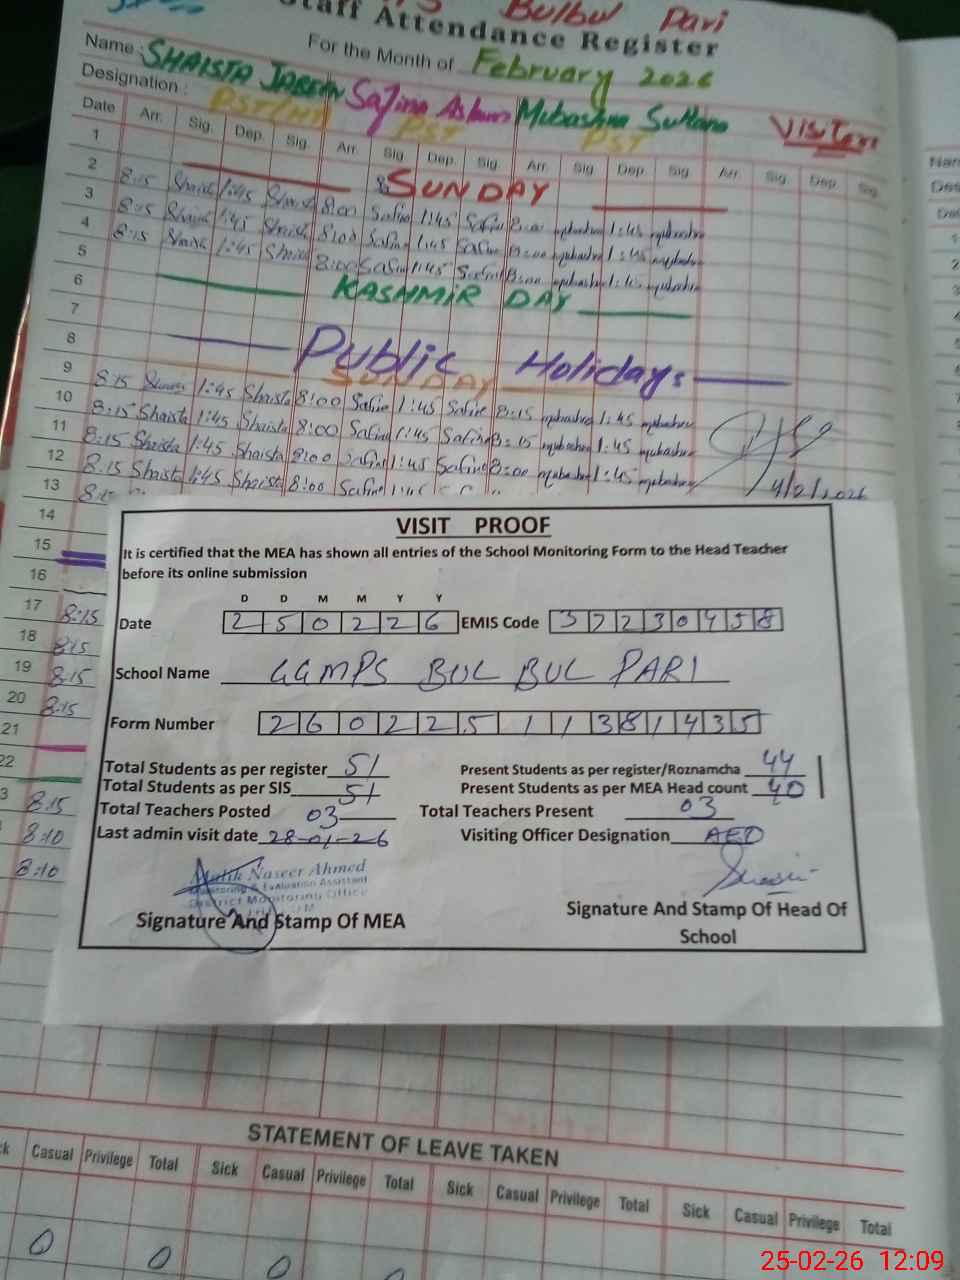 Bulbul Pari
Staff Attendance Register
For the Month of February 2026
Name : SHAISTA JABEEN Sajina Aslam Mubashra Sultana Visitors
Designation : PST/HT PST PST
Date Arr. Sig. Dep. Sig. Arr. Sig. Dep. Sig. Arr. Sig. Dep. Sig. Arr. Sig. Dep. Sig.
1 SUNDAY
2 8:15 Shaista 1:45 Shaista 8:00 Safina 1:45 Safina 8:00 mubashra 1:45 mubashra
3 8:15 Shaista 1:45 Shaista 8:00 Safina 1:45 Safina 8:00 mubashra 1:45 mubashra
4 8:15 Shaista 1:45 Shaista 8:00 Safina 1:45 Safina 8:00 mubashra 1:45 mubashra
5 KASHMIR DAY
6
7 Public Holidays
8 SUNDAY
9 8:15 Shaista 1:45 Shaista 8:00 Safina 1:45 Safina 8:15 mubashra 1:45 mubashra
10 8:15 Shaista 1:45 Shaista 8:00 Safina 1:45 Safina 8:15 mubashra 1:45 mubashra
11 8:15 Shaista 1:45 Shaista 8:00 Safina 1:45 Safina 8:00 mubashra 1:45 mubashra
12 8:15 Shaista 1:45 Shaista 8:00 Safina 1:45
13 8:15
14
15
16
17 8:15
18 8:15
19 8:15
20 8:15
21
22
3 8:15
8:10
8:10
VISIT PROOF
It is certified that the MEA has shown all entries of the School Monitoring Form to the Head Teacher
before its online submission
D D M M Y Y
Date 2 5 0 2 2 6 EMIS Code 3 7 2 3 0 4 5 8
School Name GGMPS BUL BUL PARI
Form Number 2 6 0 2 2 5 1 1 3 8 1 4 3 5
Total Students as per register 51 Present Students as per register/Roznamcha 44
Total Students as per SIS 51 Present Students as per MEA Head count 40
Total Teachers Posted 03 Total Teachers Present 03
Last admin visit date 28-01-26 Visiting Officer Designation AEO
Malik Naseer Ahmed
Monitoring & Evaluation Assistant
District Monitoring Office
Signature And Stamp Of MEA
Signature And Stamp Of Head Of
School
STATEMENT OF LEAVE TAKEN
Casual Privilege Total Sick Casual Privilege Total Sick Casual Privilege Total Sick Casual Privilege Total
0 0 0 0
25-02-26 12:09